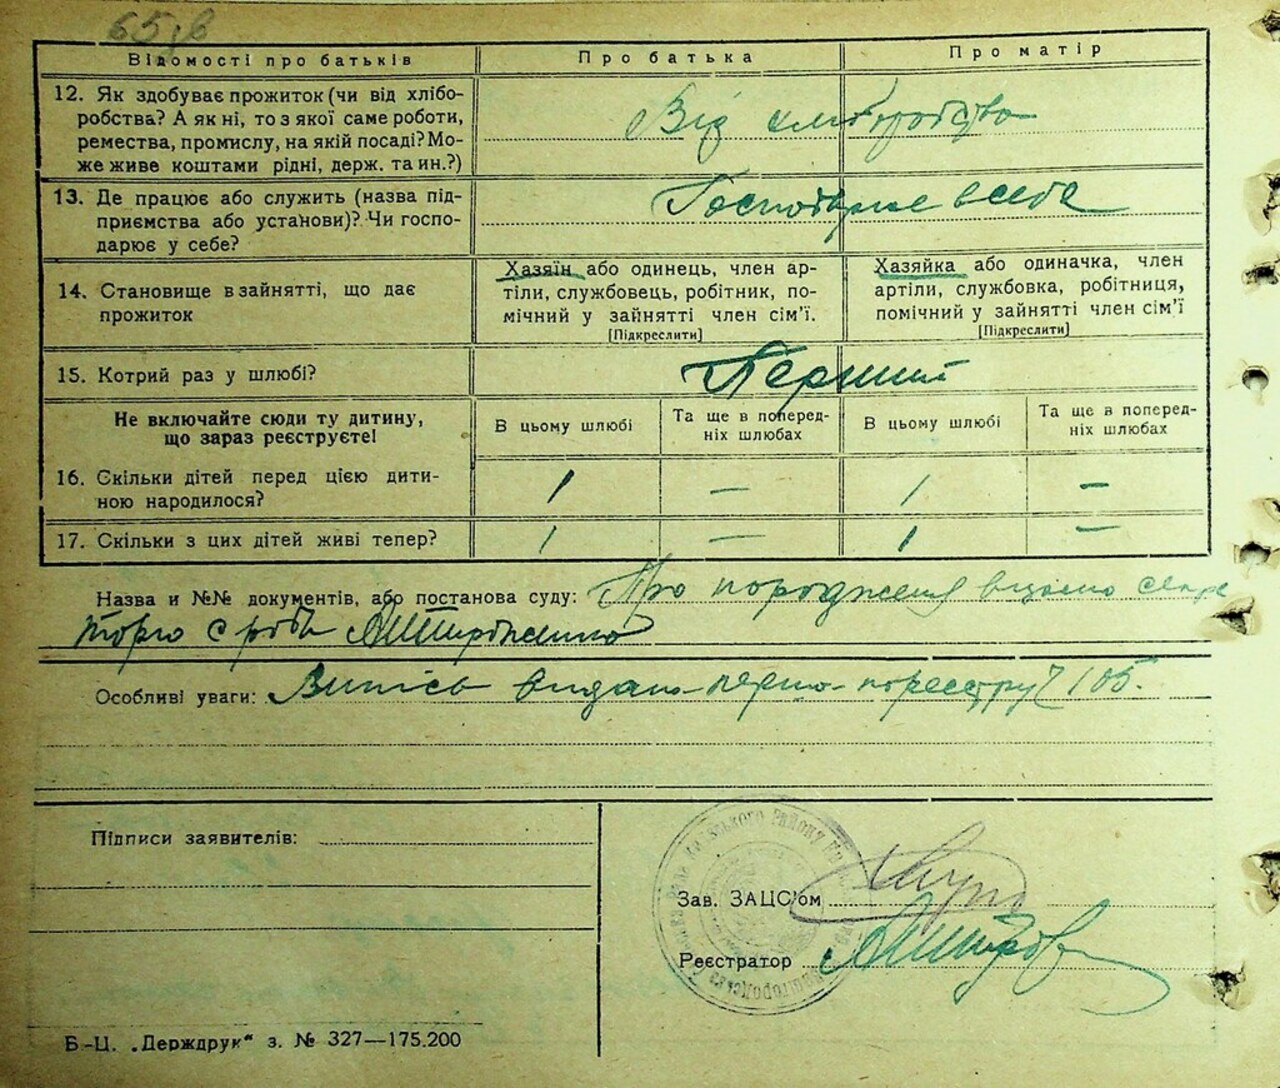 Відомості про батьків
Про батька
Про матір
12. Як здобуває прожиток (чи від хлібо-
робства? А як ні, то з якої саме роботи,
ремества, промислу, на якій посаді? Мо-
же живе коштами рідні, держ. та ин.?)
Від хліборобства
13. Де працює або служить (назва під-
приємства або установи)? Чи госпо-
дарює у себе?
Господарює в себе
14. Становище в зайнятті, що дає
прожиток
Хазяїн або одинець, член ар-
тіли, службовець, робітник, по-
мічний у зайнятті член сім'ї.
[Підкреслити]
Хазяйка або одиначка, член
артіли, службовка, робітниця,
помічний у зайнятті член сім'ї
[Підкреслити]
15. Котрий раз у шлюбі?
Перший
Не включайте сюди ту дитину,
що зараз реєструєте!
В цьому шлюбі
Та ще в поперед-
ніх шлюбах
В цьому шлюбі
Та ще в поперед-
ніх шлюбах
16. Скільки дітей перед цією дити-
ною народилося?
1 — 1 —
17. Скільки з цих дітей живі тепер?
1 — 1 —
Назва и №№ документів, або постанова суду: Про народження
Особливі уваги: Випись видано
105.
Підписи заявителів:
Зав. ЗАЦС'ом
Реєстратор
Б-Ц. „Держдрук“ з. № 327—175.200